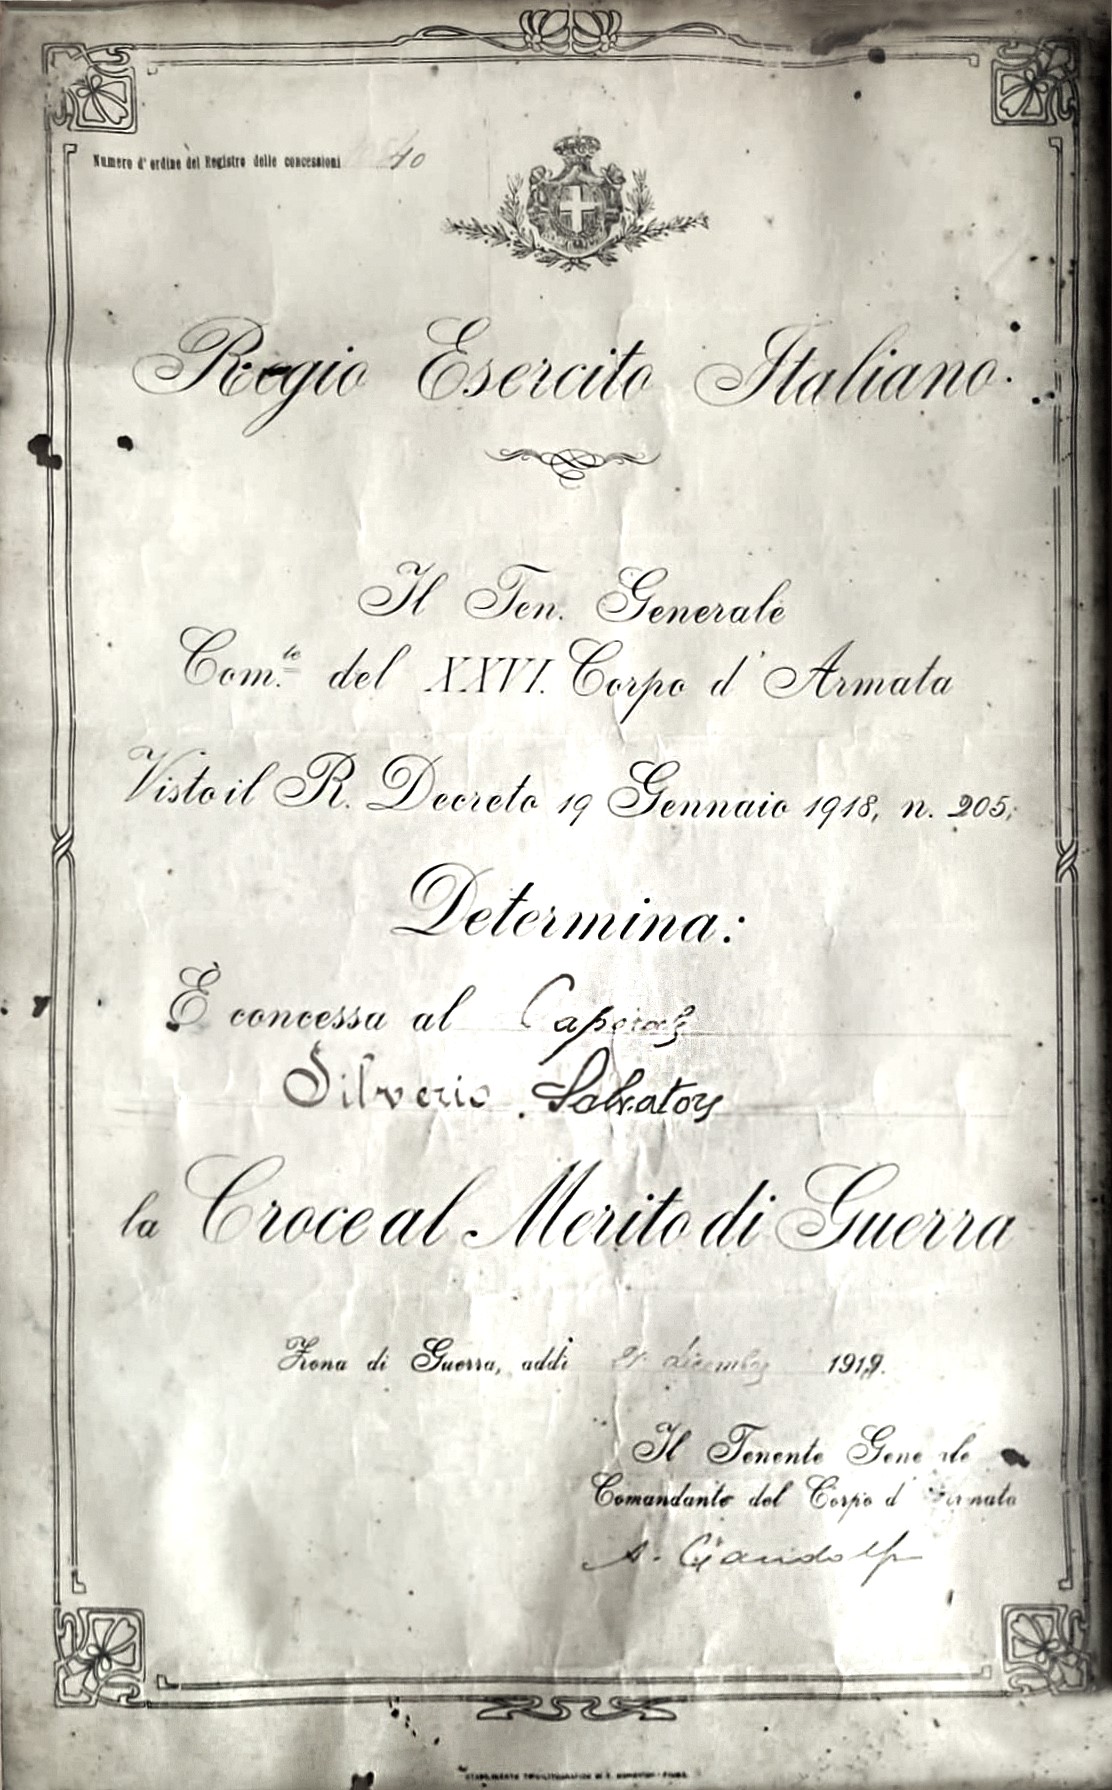 Numero d'ordine del Registro delle concessioni 40
Regio Esercito Italiano.
Il Ten. Generale
Com.te del XXVI. Corpo d'Armata
Visto il R. Decreto 19 Gennaio 1918, n. 205;
Determina:
È concessa al Caporale
Silverio Salvatore
la Croce al Merito di Guerra
Zona di Guerra, addì 21 dicembre 1919.
Il Tenente Generale
Comandante del Corpo d'Armata
A. Gandolfo